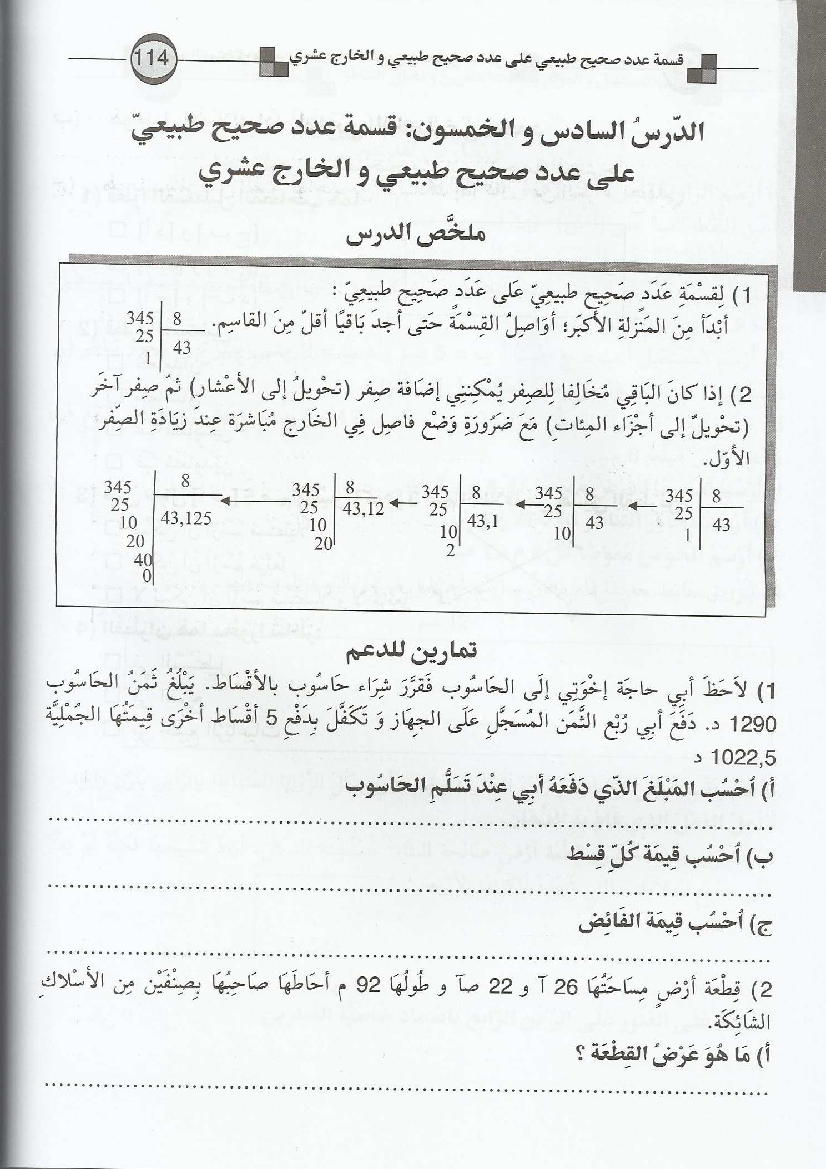 114
قسمة عدد صحيح طبيعي على عدد صحيح طبيعي و الخارج عشري
الدّرسُ السادس و الخمسون: قسمة عدد صحيح طبيعيّ
على عدد صحيح طبيعي و الخارج عشري
ملخَّص الدرس
1) لِقِسْمَةِ عَدَدٍ صَحِيحٍ طَبِيعِيّ عَلَى عَدَدٍ صَحِيحٍ طَبِيعِيّ :
أَبْدَأُ مِنَ المَنزِلَةِ الأَكْبَرِ؛ أُوَاصِلُ القِسْمَةَ حَتى أجدَ بَاقيًا أقلّ مِنَ القاسِم.
345 8
25 43
1
2) إذا كانَ البَاقِي مُخَالفا للصِفر يُمْكِنُنِي إضَافة صِفر (تحْوِيلٌ إلى الأعْشار) ثمّ صِفر آخَر
(تحْوِيلٌ إلى أجْزَاء المِئاتِ) مَعَ ضَرُورَةِ وَضْعِ فاصِل فِي الخارج مُبَاشرَة عِندَ زِيَادَةِ الصِّفر
الأوّل.
345 8
25 43
1
345 8
25 43
10
345 8
25 43,1
10
2
345 8
25 43,12
10
20
345 8
25 43,125
10
20
40
0
تمارين للدعم
1) لاَحَظَ أبِي حاجة إخْوَتِي إلَى الحَاسُوبِ فَقَرَّرَ شِرَاء حَاسُوب بالأقْسَاط. يَبْلُغُ ثمَنُ الحَاسُوب
1290 د. دَفَعَ أبي رُبْع الثَّمَن المُسَجَّلِ عَلَى الجهَاز وَ تَكَفَّلَ بِدَفْع 5 أقْسَاط أخْرَى قِيمَتُهَا الجُمْلِيَّة
1022,5 د
أ) أحْسُب المَبْلَغَ الذّي دَفَعَهُ أبي عِنْدَ تَسَلُّمِ الحَاسُوب
ب) أحْسُب قِيمَة كُلّ قِسْط
ج) أحْسُب قِيمَة الفَائِض
2) قِطْعَة أرْضٍ مِسَاحَتُهَا 26 آ و 22 صآ و طُولُهَا 92 م أحَاطَهَا صَاحِبُهَا بِصِنْفَيْن مِن الأسْلاكِ
الشَائِكَة.
أ) مَا هُوَ عَرْضُ القِطْعَة ؟